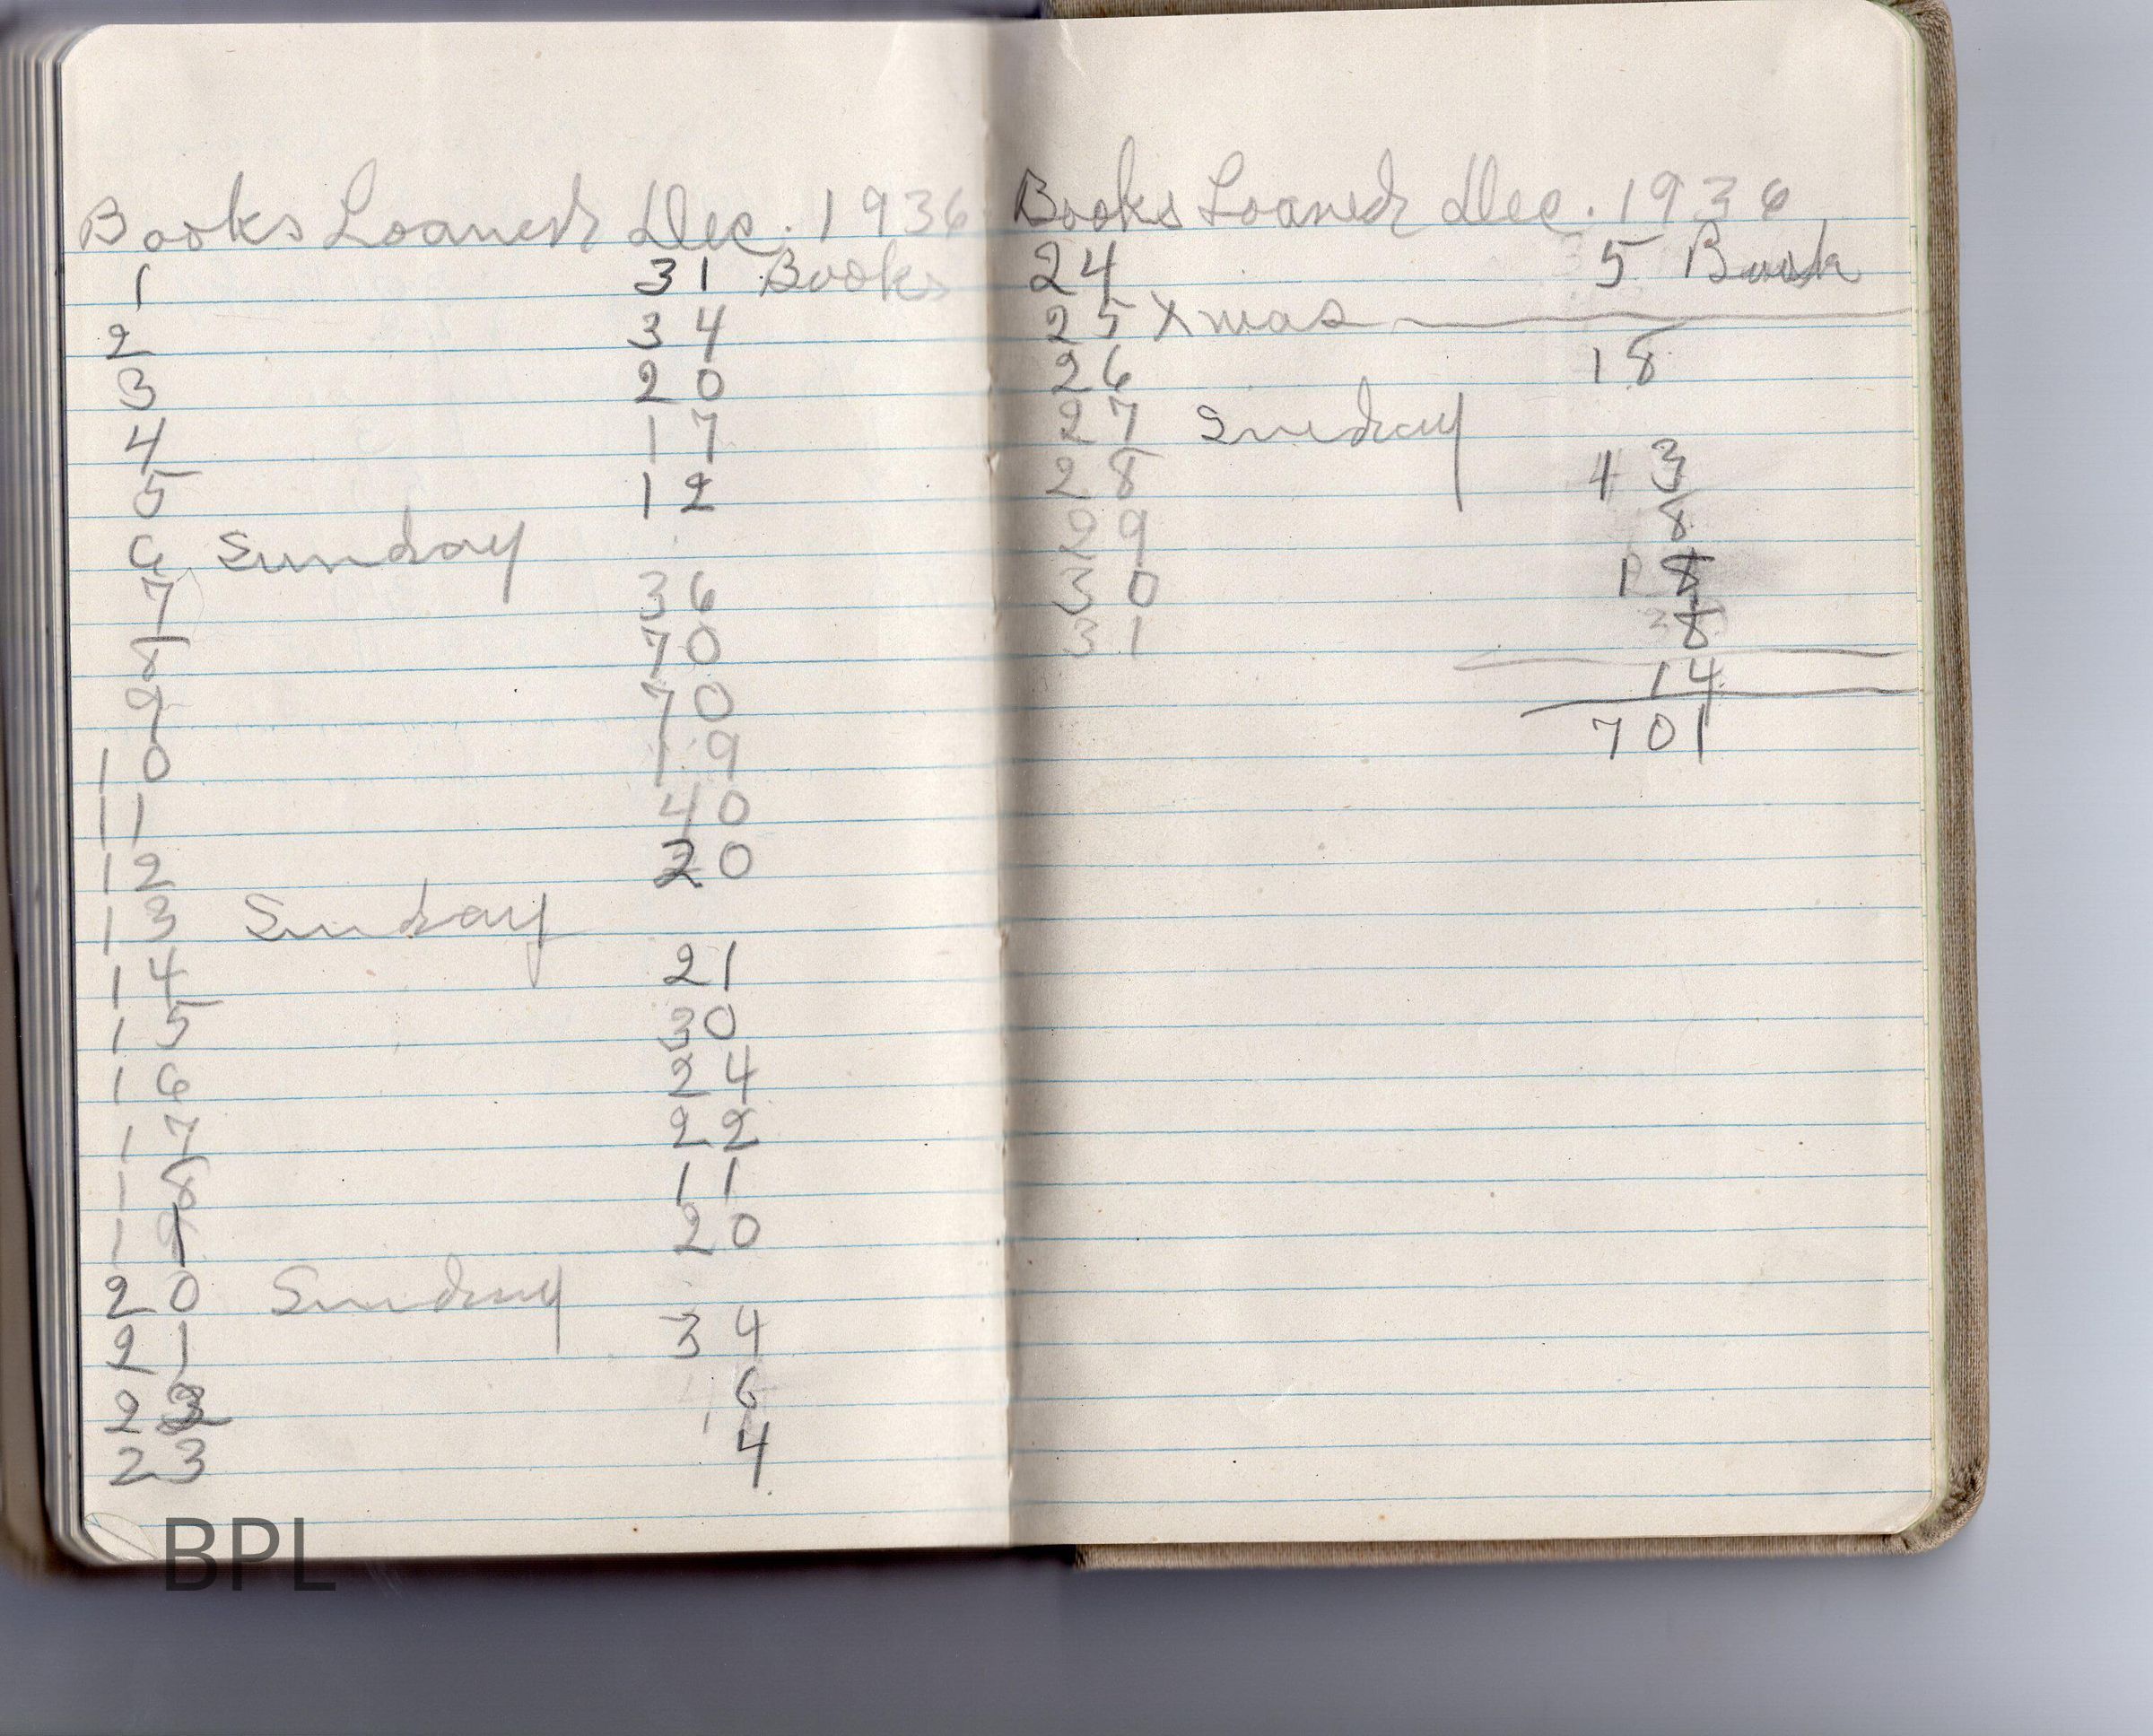 Books Loaned Dec. 1936
1 31 Books
2 34
3 20
4 17
5 12
6 Sunday
7 36
8 70
9 70
10 19
11 40
12 20
13 Sunday
14 21
15 30
16 24
17 22
18 11
19 20
20 Sunday
21 34
22 6
23 4
Books Loaned Dec. 1936
24 5 Books
25 Xmas
26 18
27 Sunday
28 43
29 8
30
31 8
14
701
BPL